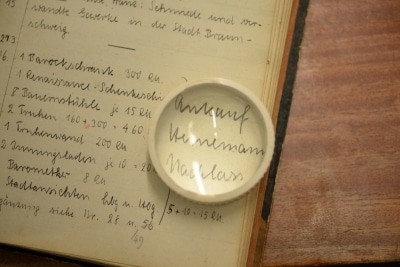 Schmiede und ver-
wandte Gewerke in der Stadt Braun-
schweig.
1 Barockschrank 300 RM
1 Renaissance-
5 Bauernstühle je 15 RM
2 Truhen 160 + 300 = 460
1 Truhenwand 200 RM
2 Innungsladen je 10 = 20
Barometer 8 RM
Stadtansichten
siehe Nr. 28 u. 56
Ankauf
Heinemann
Nachlass
5 = 10 - 15 RM